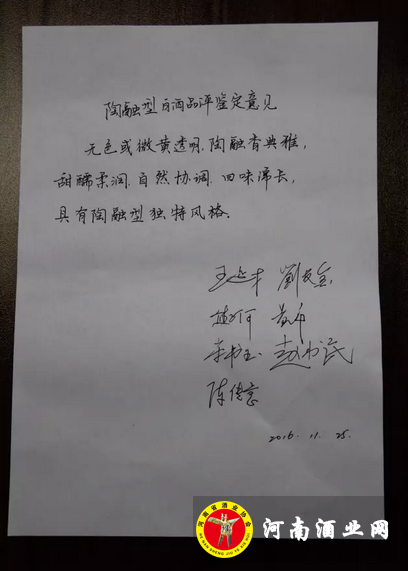 陶融型白酒品评鉴定意见
无色或微黄透明、陶融香典雅，
甜醇柔润、自然协调、回味绵长，
具有陶融型独特风格。
王延才 劉友金
赵书民
2016. 11. 25.
河南省酒业协会
河南酒业网